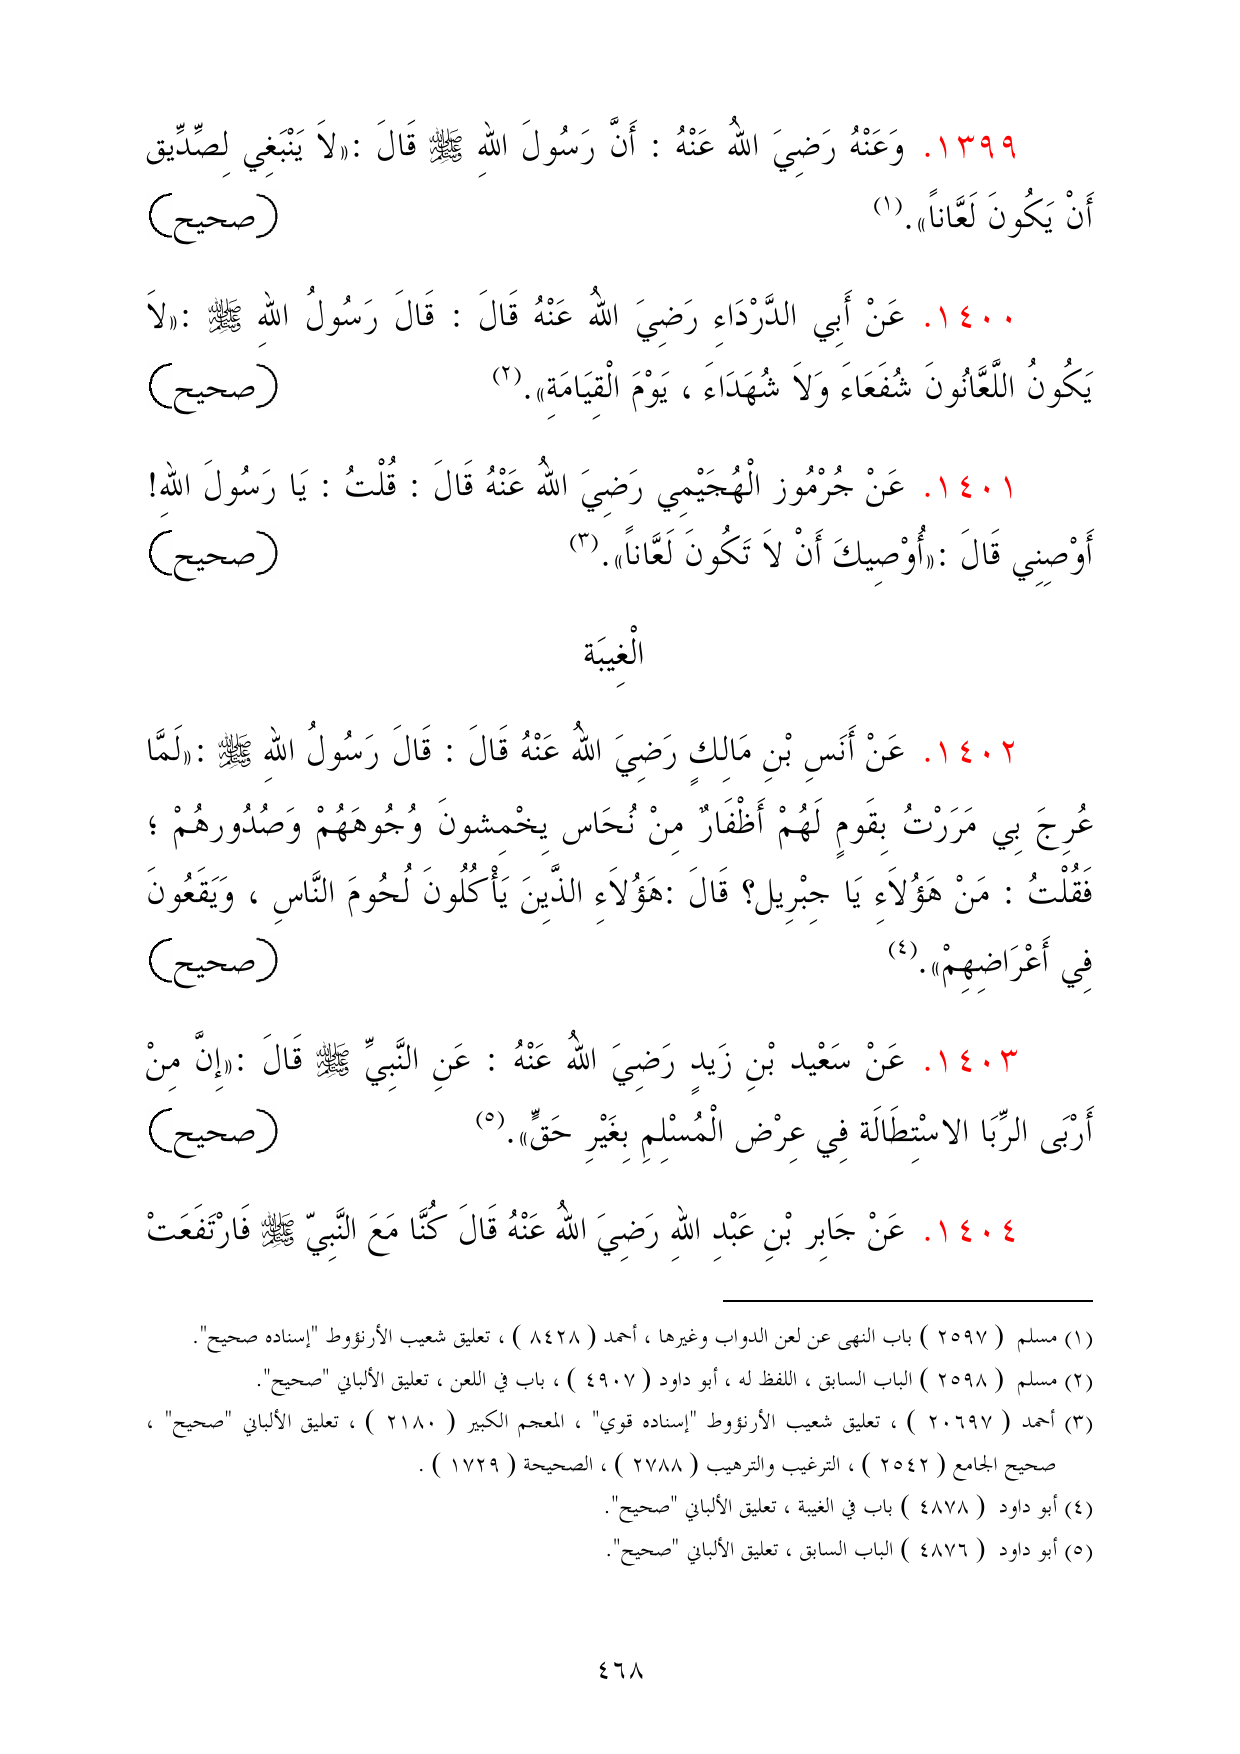 ١٣٩٩. وَعَنْهُ رَضِيَ اللهُ عَنْهُ : أَنَّ رَسُولَ اللهِ ﷺ قَالَ :«لاَ يَنْبَغِي لِصِّدِّيق
أَنْ يَكُونَ لَعَّاناً».(١) (صحيح)
١٤٠٠. عَنْ أَبِي الدَّرْدَاءِ رَضِيَ اللهُ عَنْهُ قَالَ : قَالَ رَسُولُ اللهِ ﷺ :«لاَ
يَكُونُ اللَّعَّانُونَ شُفَعَاءَ وَلاَ شُهَدَاءَ ، يَوْمَ الْقِيَامَةِ».(٢) (صحيح)
١٤٠١. عَنْ جُرْمُوز الْهُجَيْمِي رَضِيَ اللهُ عَنْهُ قَالَ : قُلْتُ : يَا رَسُولَ اللهِ!
أَوْصِنِي قَالَ :«أُوْصِيكَ أَنْ لاَ تَكُونَ لَعَّاناً».(٣) (صحيح)
الْغِيبَة
١٤٠٢. عَنْ أَنَسِ بْنِ مَالِكٍ رَضِيَ اللهُ عَنْهُ قَالَ : قَالَ رَسُولُ اللهِ ﷺ :«لَمَّا
عُرِجَ بِي مَرَرْتُ بِقَومٍ لَهُمْ أَظْفَارٌ مِنْ نُحَاس يخْمِشونَ وُجُوهَهُمْ وَصُدُورهُمْ ؛
فَقُلْتُ : مَنْ هَؤُلاَءِ يَا جِبْرِيل؟ قَالَ :هَؤُلاَءِ الذَّينَ يَأْكُلُونَ لُحُومَ النَّاسِ ، وَيَقَعُونَ
فِي أَعْرَاضِهِمْ».(٤) (صحيح)
١٤٠٣. عَنْ سَعْيد بْنِ زَيدٍ رَضِيَ اللهُ عَنْهُ : عَنِ النَّبِيِّ ﷺ قَالَ :«إِنَّ مِنْ
أَرْبَى الرِّبَا الاسْتِطَالَة فِي عِرْض الْمُسْلِمِ بِغَيْرِ حَقٍّ».(٥) (صحيح)
١٤٠٤. عَنْ جَابِر بْنِ عَبْدِ اللهِ رَضِيَ اللهُ عَنْهُ قَالَ كُنَّا مَعَ النَّبِيّ ﷺ فَارْتَفَعَتْ
(١) مسلم ( ٢٥٩٧ ) باب النهى عن لعن الدواب وغيرها ، أحمد ( ٨٤٢٨ ) ، تعليق شعيب الأرنؤوط "إسناده صحيح".
(٢) مسلم ( ٢٥٩٨ ) الباب السابق ، اللفظ له ، أبو داود ( ٤٩٠٧ ) ، باب في اللعن ، تعليق الألباني "صحيح".
(٣) أحمد ( ٢٠٦٩٧ ) ، تعليق شعيب الأرنؤوط "إسناده قوي" ، المعجم الكبير ( ٢١٨٠ ) ، تعليق الألباني "صحيح" ،
صحيح الجامع ( ٢٥٤٢ ) ، الترغيب والترهيب ( ٢٧٨٨ ) ، الصحيحة ( ١٧٢٩ ) .
(٤) أبو داود ( ٤٨٧٨ ) باب في الغيبة ، تعليق الألباني "صحيح".
(٥) أبو داود ( ٤٨٧٦ ) الباب السابق ، تعليق الألباني "صحيح".
٤٦٨